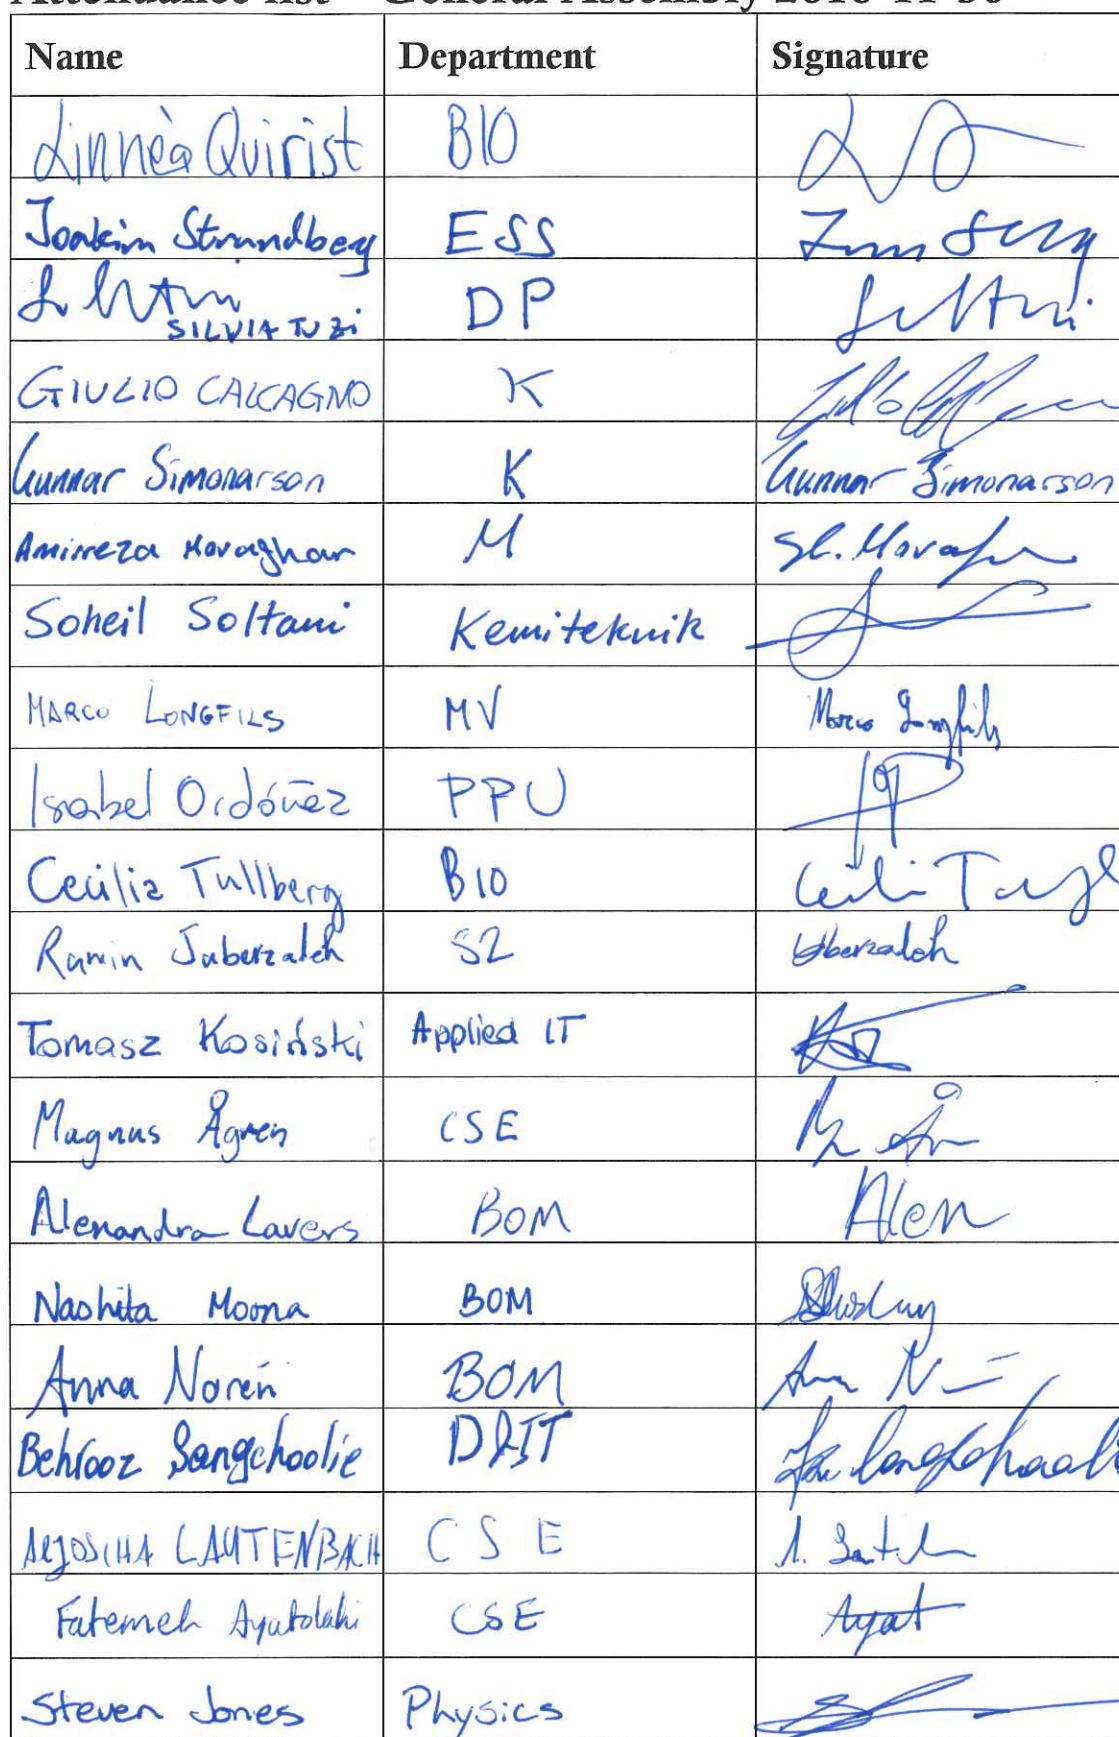 Attendance list General Assembly
Name Department Signature
Linnèa Quirist BIO
Joakim Strandberg ESS
SILVIA TUZI DP
GIULIO CALCAGNO K
Gunnar Simonarson K Gunnar Simonarson
Amirreza Movaghar M
Soheil Soltani Kemiteknik
MARCO LONGFILS MV Marco Longfils
Isabel Ordóñez PPU
Cecilia Tullberg B10
Ramin Jaberzadeh S2
Tomasz Kosiński Applied IT
Magnus Ågren CSE
Alexandra Lavers BOM
Nashita Moona BOM
Anna Norén BOM
Behrooz Sangchoolie D&IT
ALJOSCHA LAUTENBACH CSE
Fatemeh Ayatolahi CSE Ayat
Steven Jones Physics